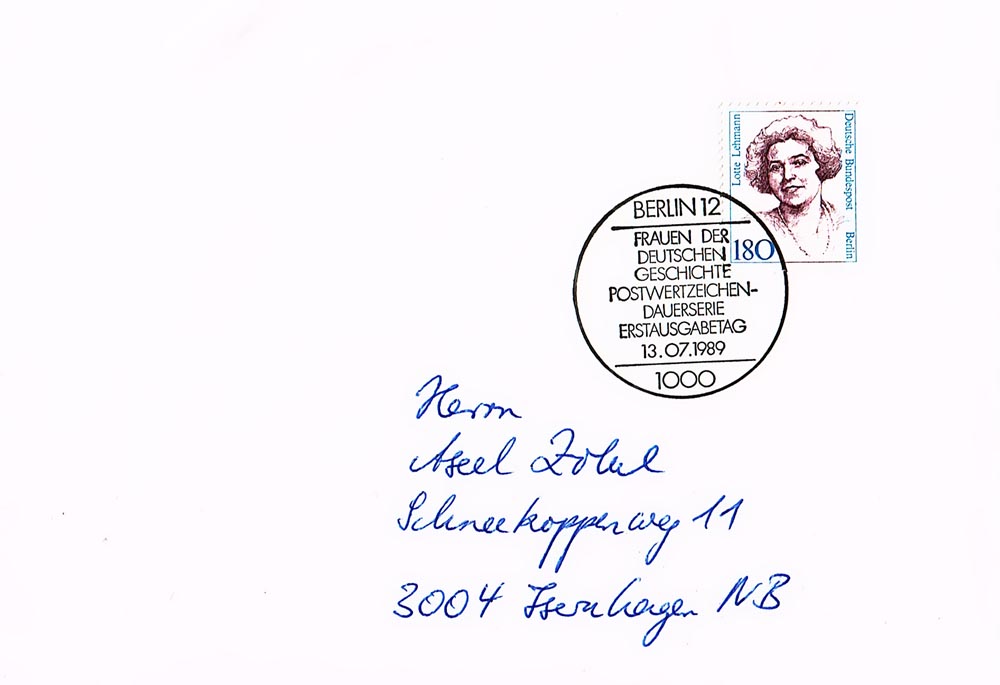 Lotte Lehmann
Deutsche Bundespost Berlin
180
BERLIN 12
FRAUEN DER
DEUTSCHEN
GESCHICHTE
POSTWERTZEICHEN-
DAUERSERIE
ERSTAUSGABETAG
13.07.1989
1000
Herrn
Axel
Schneekoppenweg 11
3004 Isernhagen NB